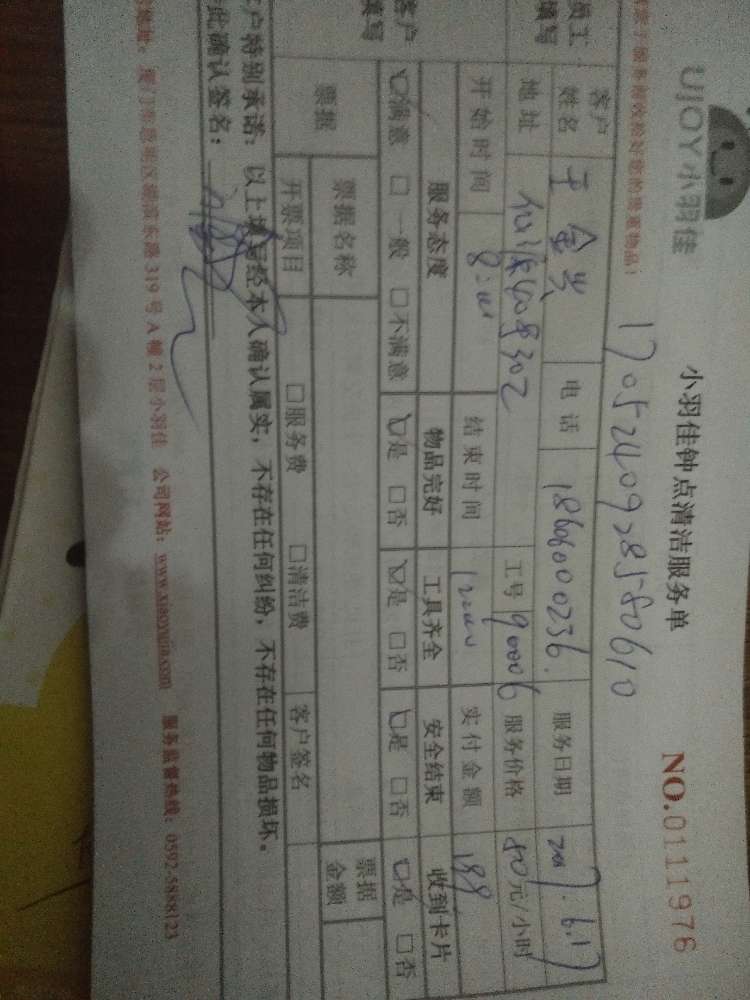 UJOY小羽佳
小羽佳钟点清洁服务单
NO.0111976
17052409285580610
员工填写
客户姓名
电话 18606000236.
服务日期 2017.6.17
地址
工号 90006
服务价格 80元/小时
开始时间 8:00
结束时间 12:00
实付金额 188
客户填写
服务态度 物品完好 工具齐全 安全结束 收到卡片
☑满意 □一般 □不满意 ☑是 □否 ☑是 □否 ☑是 □否 ☑是 □否
票据 票据名称 票据金额
开票项目 □服务费 □清洁费 客户签名
客户特别承诺：以上填写经本人确认属实，不存在任何纠纷，不存在任何物品损坏。
此确认签名：
319号A幢2层小羽佳 公司网站：www.xiaoyujia.com 服务监督热线：0592-5888123